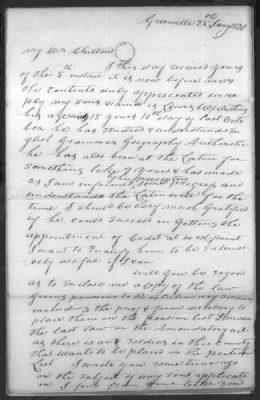 Greenville 25th Jany 1831
My Dr Chilton
I this day received yours
of the 5th instant it is now before me &
the Contents duly appreciated in re
ply my sons name is Lewis
his age is 15 years 10th day of last Octo
ber he has studied & understands En
glish Grammar Geography Arithmetic
he has also been at the Latin for
something like 2 years & has made
as I am informed good progress and
understands the Latin well for the
time I should be very much Gratified
if he could succeed in getting the
appointment of Cadet at west point
I want to qualify him to be Extens
ively useful if I can
will you be so good
as to Enclose me a Copy of the law
giving pensions to Revolutionary
including the proof & form necessary to
place them on the pension list I mean
the last law or the Amendatory act
as there is one Soldier in this County
that wants to be placed on the pention
list I wrote you some time ago
on the subject of my sons application
as I find from your letter you